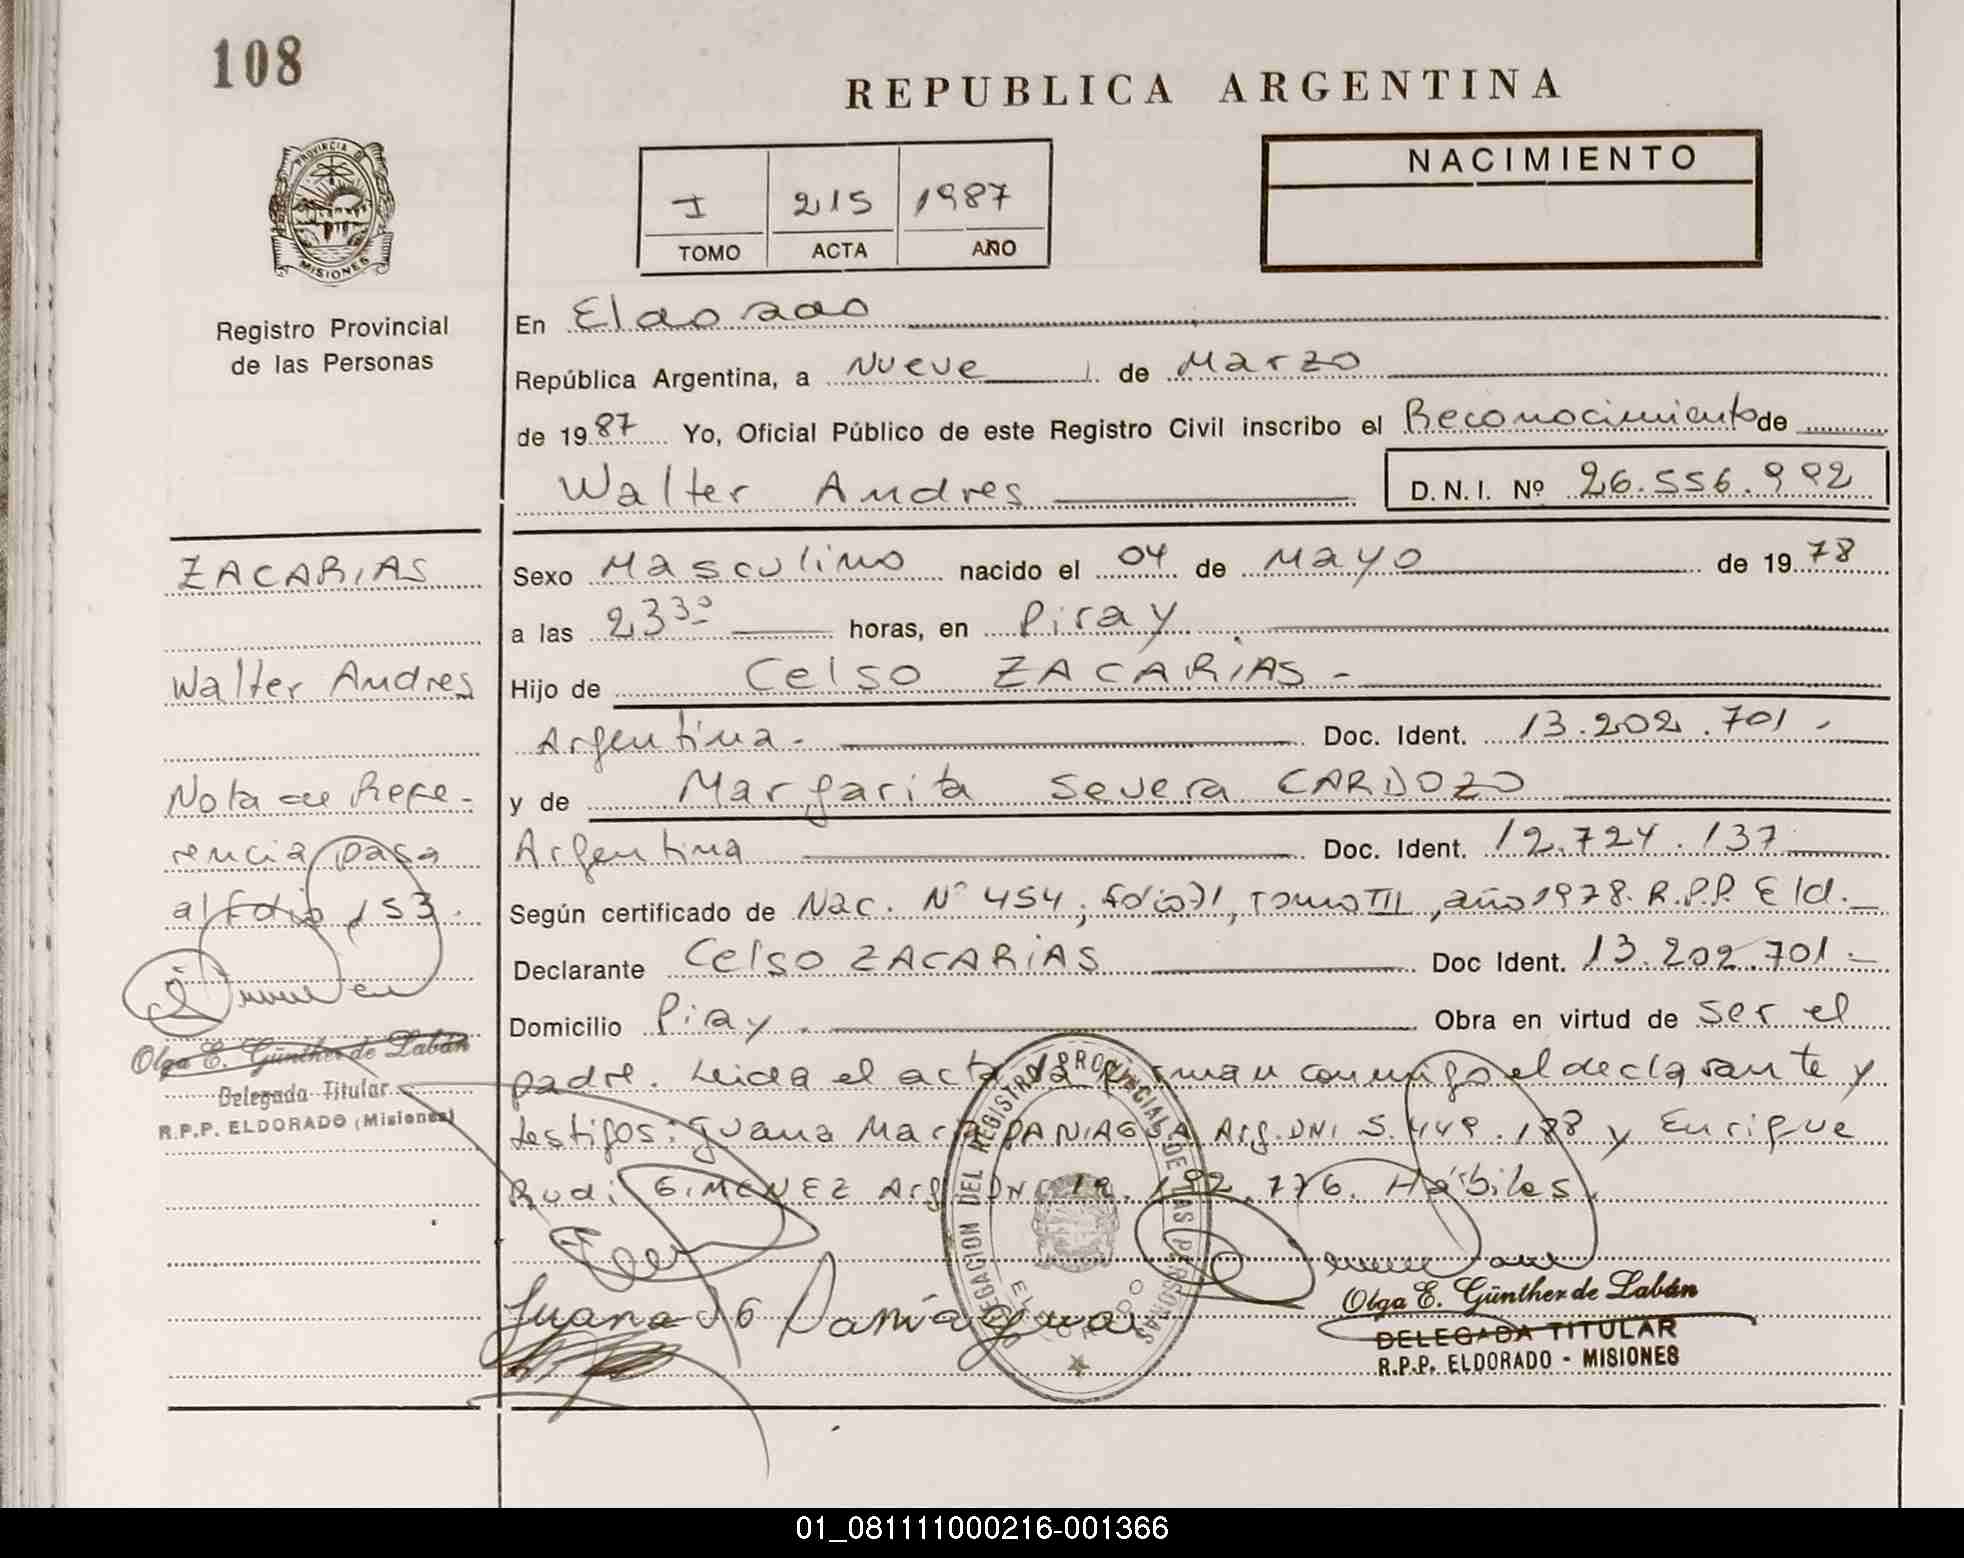 108
REPUBLICA ARGENTINA
PROVINCIA DE
MISIONES
Registro Provincial
de las Personas
I 215 1987
TOMO ACTA AÑO
NACIMIENTO
En Eldorado
República Argentina, a Nueve de Marzo
de 1987 Yo, Oficial Público de este Registro Civil inscribo el Reconocimiento de
Walter Andres
D.N.I. Nº 26.556.992
ZACARIAS
Walter Andres
Nota de Refe-
rencia pasa
al folio 153.
Olga E. Günther de Labán
Delegada Titular
R.P.P. ELDORADO (Misiones)
Sexo Masculino nacido el 04 de Mayo de 1978
a las 23³⁰ horas, en Piray
Hijo de Celso ZACARIAS -
Argentina.- Doc. Ident. 13.202.701 -
y de Margarita Severa CARDOZO
Argentina Doc. Ident. 12.724.137
Según certificado de Nac. Nº 454, folio 71, tomo III, año 1978. R.P.P. Eld.
Declarante Celso ZACARIAS Doc Ident. 13.202.701 -
Domicilio Piray. Obra en virtud de ser el
padre. Leida el acta la firman conmigo el declarante y
testigos: Juana Mar PANIAGUA Arg. DNI 5.449.188 y Enrique
Rudi GIMENEZ Arg DNI 192.776. Hábiles.
Juana Paniagua
DELEGACION DEL REGISTRO PROVINCIAL DE LAS PERSONAS
ELDORADO
Olga E. Günther de Labán
DELEGADA TITULAR
R.P.P. ELDORADO - MISIONES
01_081111000216-001366